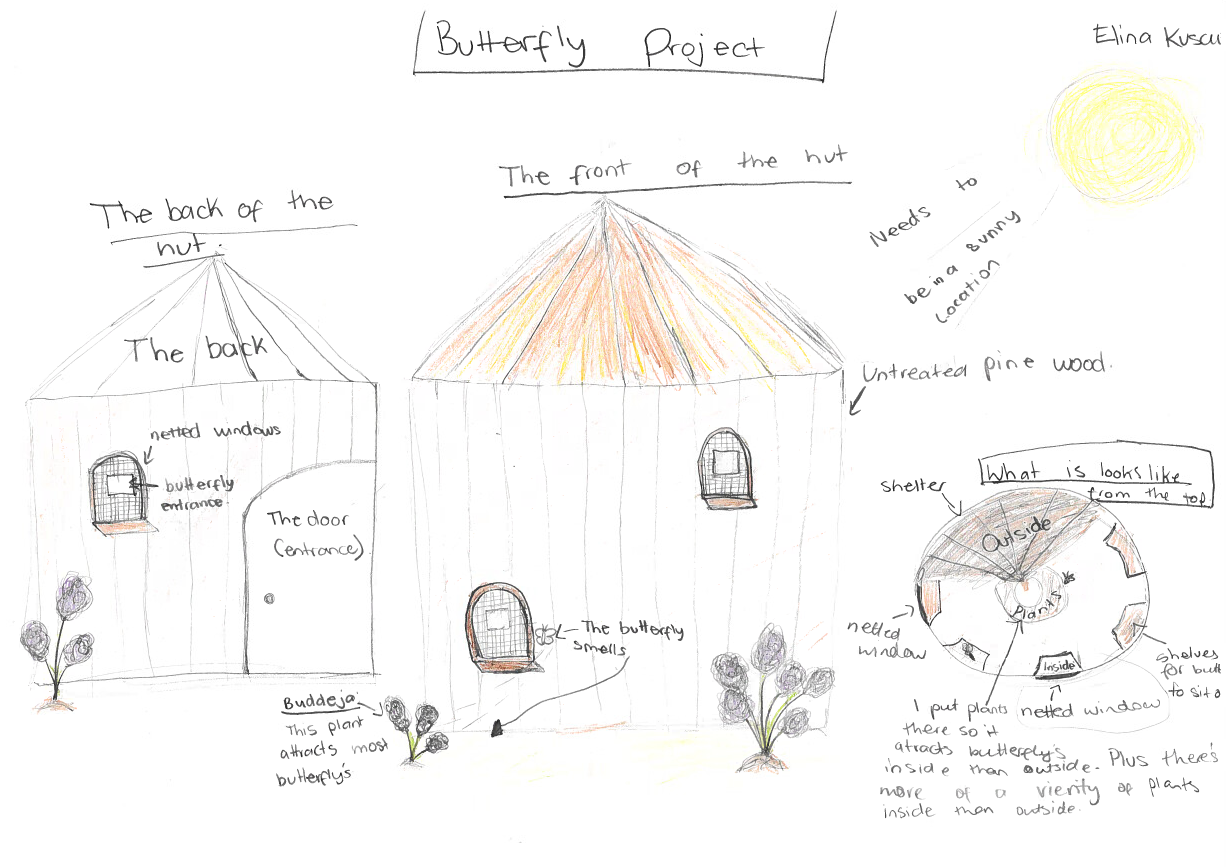 Butterfly Project
Elina
The front of the hut
The back of the
hut.
Needs to
be in a sunny
Location
The back
Untreated pine wood.
netted windows
butterfly
entrance.
The door
(entrance)
What is looks like
from the top
shelter
Outside
Plants
netted
window
Inside
netted window
shelves
for butt
to sit
The butterfly
smells
Buddeja:
This plant
attracts most
butterfly's
I put plants
there so it
atracts butterfly's
inside than outside. Plus there's
more of a vierity of plants
inside then outside.